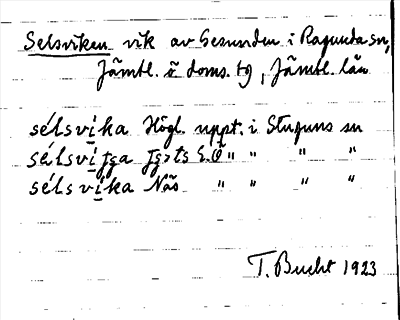 Selsviken vik av Gesunden i Ragunda sn,
Jämtl. ö doms. tg, Jämtl. län
sélsvika Högl. uppt. i Stuguns sn
sélsv E.Ö " " " "
sélsvika Näs " " " "
T. Bucht 1923